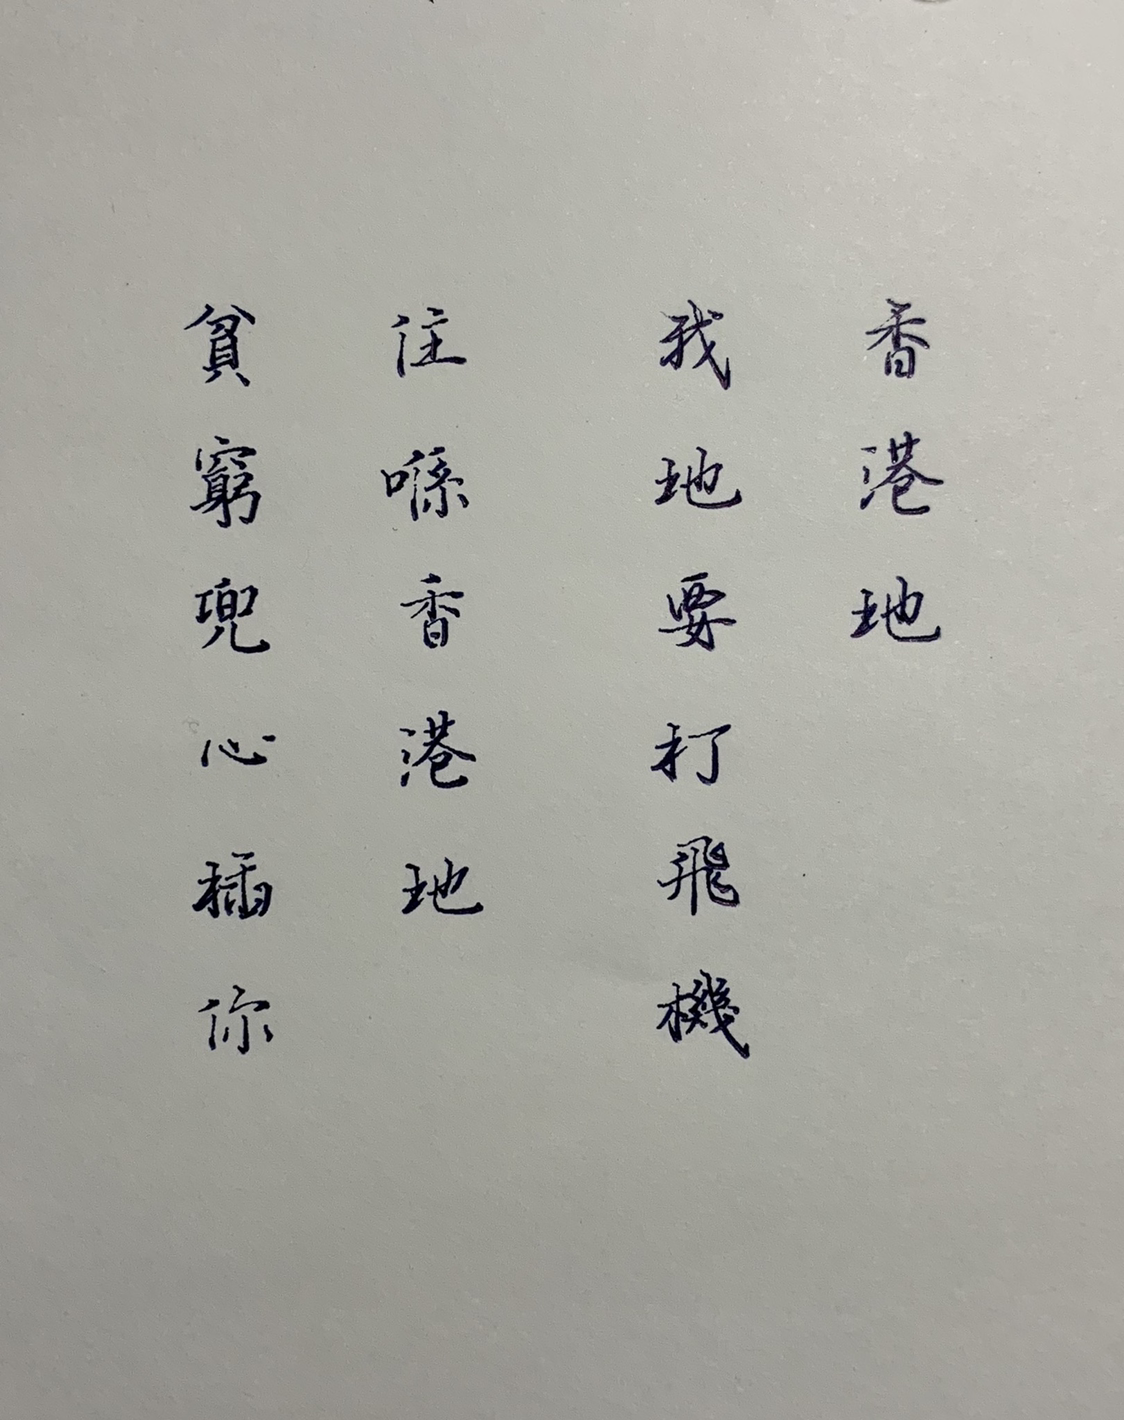 香港地
我地要打飛機
住喺香港地
貧窮兜心插你